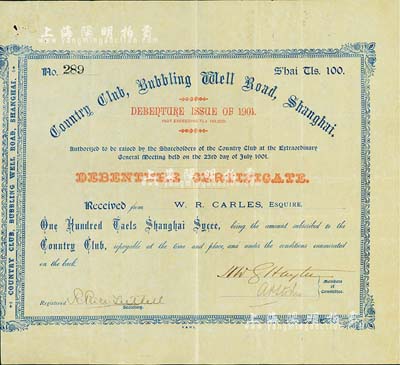 上海陽明拍賣
No. 289
S'hai Tls. 100.
Country Club, Bubbling Well Road, Shanghai.
DEBENTURE ISSUE OF 1901.
Authorized to be raised by the Shareholders of the Country Club at the Extraordinary
General Meeting held on the 23rd day of July 1901.
DEBENTURE CERTIFICATE.
Received from W. R. CARLES, ESQUIRE.
One Hundred Taels Shanghai Sycee, being the amount subscribed to the
Country Club, repayable at the time and place, and under the conditions enumerated
on the back.
Members
of
Committee.
Registered
Secretary.
COUNTRY CLUB, BUBBLING WELL ROAD, SHANGHAI.